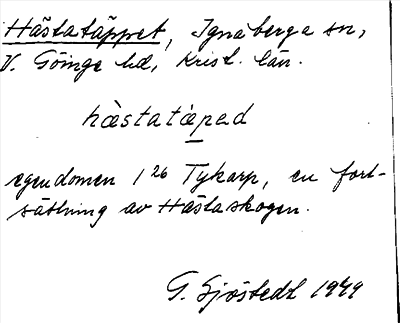 Hästatäppet, Ignaberga sn,
V. Göinge hd, Krist. län.
hästatäpəd
egendomen 1²⁶ Tykarp, en fort-
sättning av Hästaskogen.
G. Sjöstedt 1949